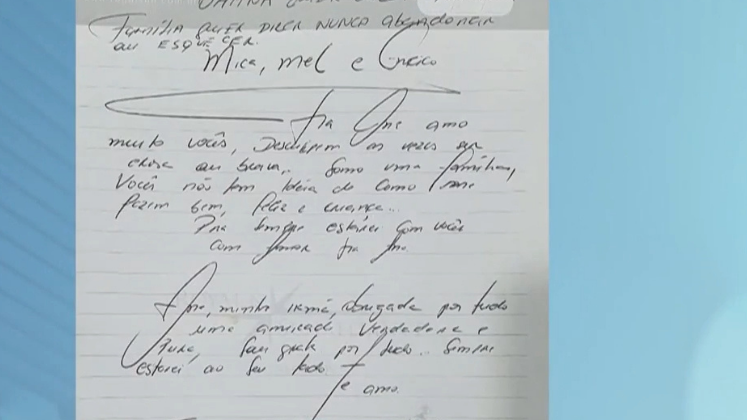 FAMÍLIA QUER DIZER NUNCA abandonar
ou ESQUECER.
Mica, mel e
Tia amo
muito vocês, Desculpem as vezes ser
chata ou brava.. Somos uma família,
Vocês não tem ideia de como me
fazem bem, feliz e criança...
Pra sempre estarei com vocês
com amor tia
minha irmã, obrigada por tudo
uma amizade verdadeira e
Pura, Sou grata por tudo.. Sempre
estarei ao seu lado
Te amo.